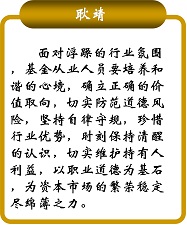 耿靖
面对浮躁的行业氛围
，基金从业人员要培养和
谐的心境，确立正确的价
值取向，切实防范道德风
险，坚持自律守规，珍惜
行业优势，时刻保持清醒
的认识，切实维护持有人
利益，以职业道德为基石
，为资本市场的繁荣稳定
尽绵薄之力。